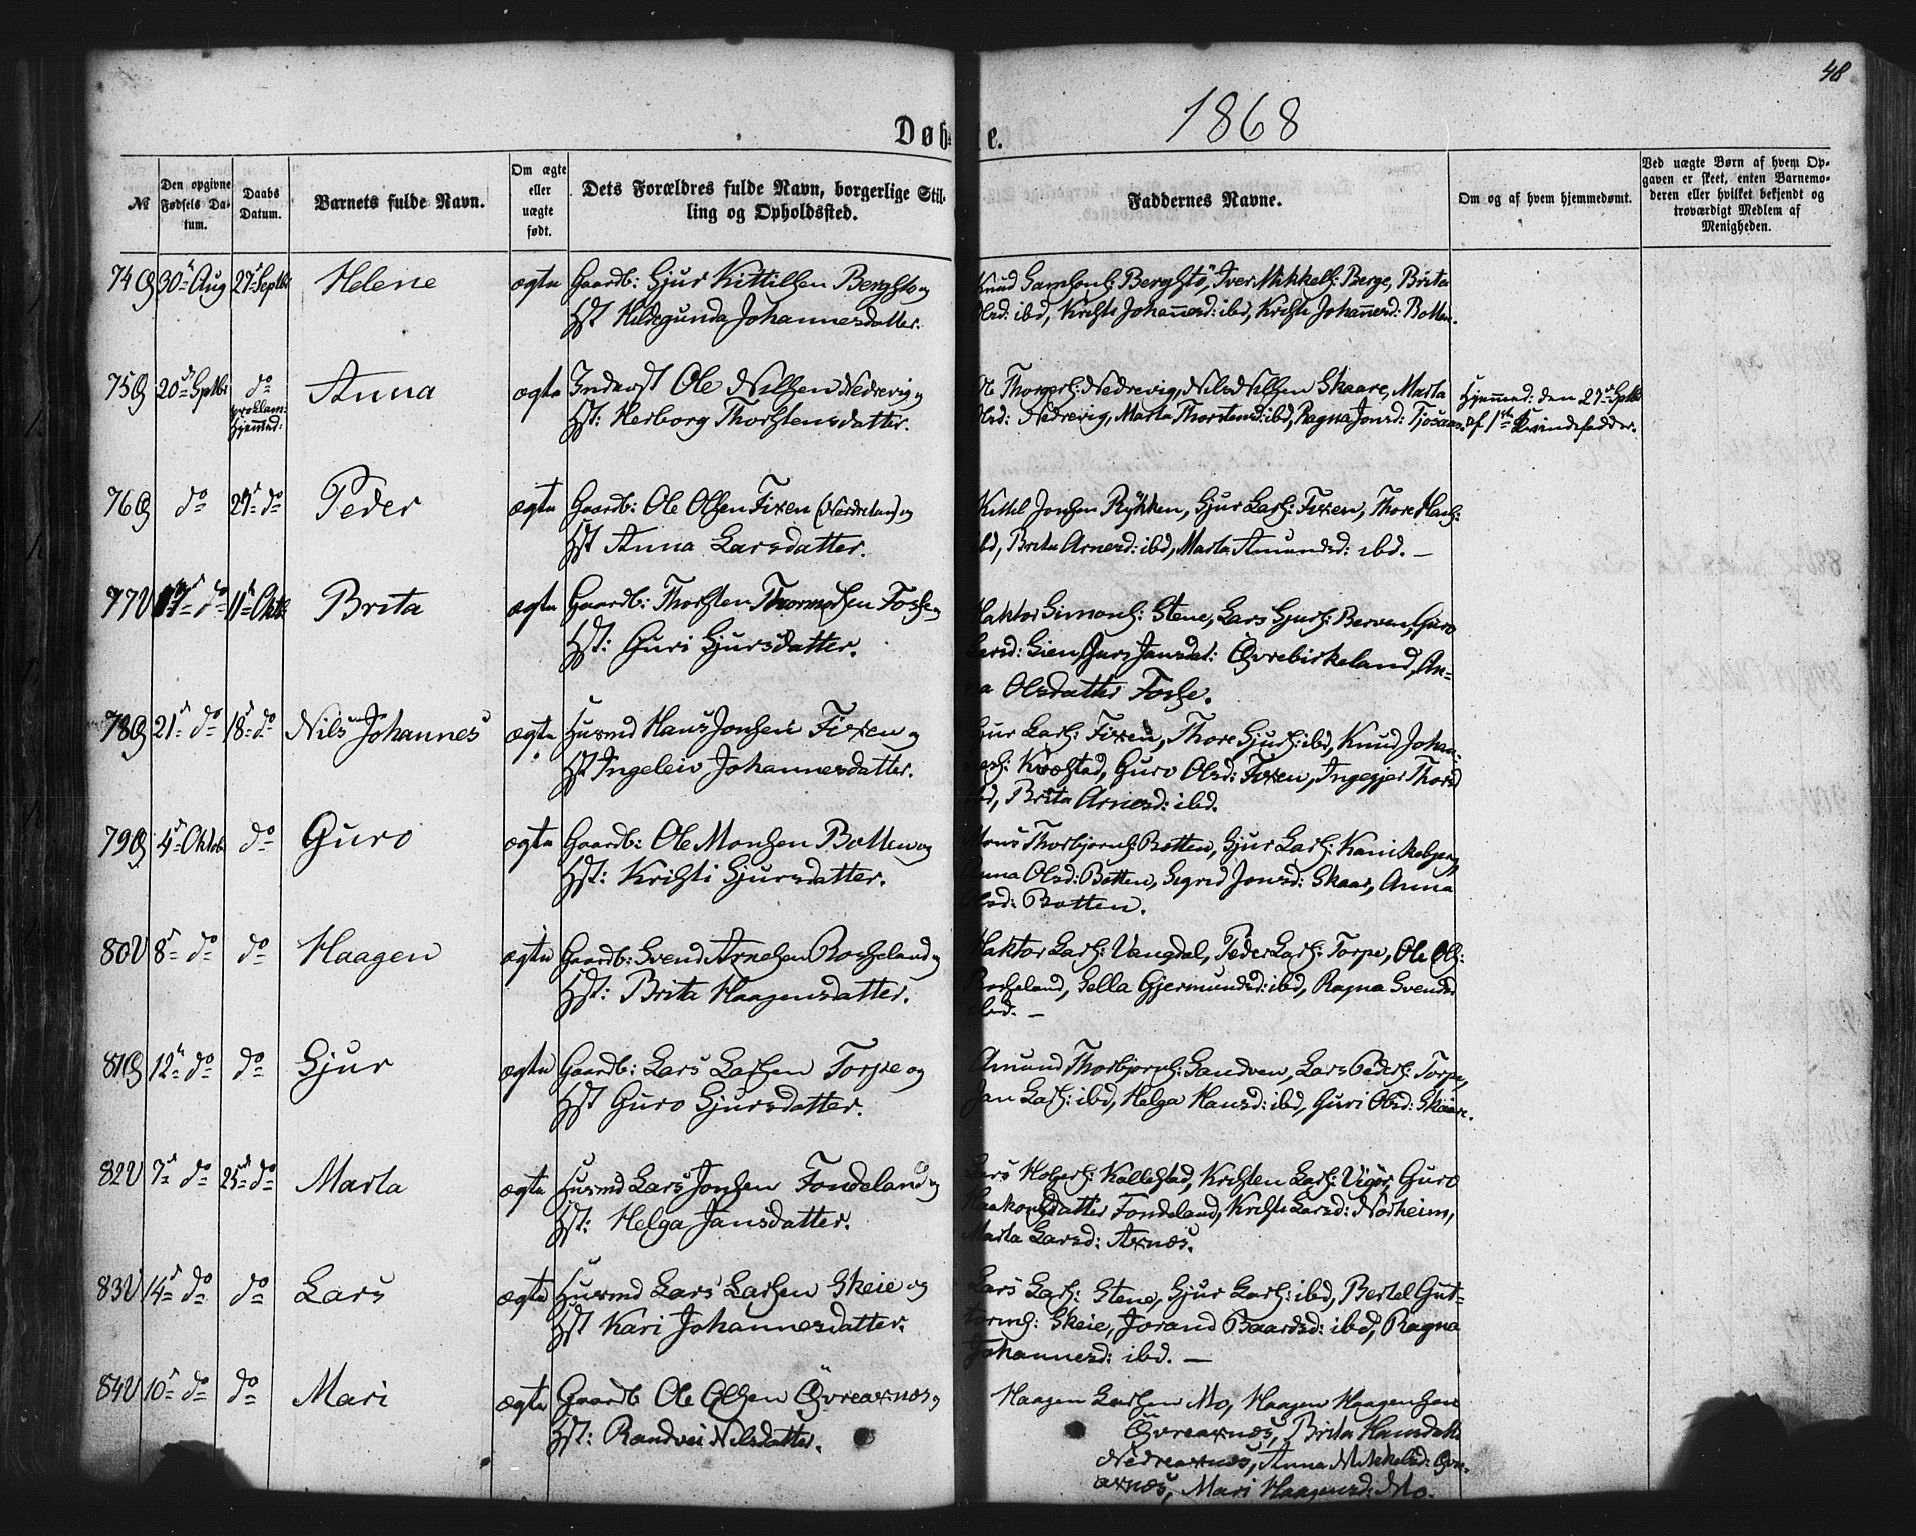 48
1868
Døbte.
№
Den opgivne Fødsels Datum.
Daabs Datum.
Barnets fulde Navn.
Om ægte eller uægte født.
Dets Forældres fulde Navn, borgerlige Stilling og Opholdssted.
Faddernes Navne.
Om og af hvem hjemmedøbt.
Ved uægte Børn af hvem Opgaven er skeet, enten Barnemoderen eller hvilket bekjendt og troværdigt Medlem af Menigheden.
74 30 Aug 27 Septbr Helene ægte Gaardb: Gjur Kittilsen Berghsto og
Hst Hildegunda Johannesdatter.
Knud Samsons: Berghstö, Iver Mikkels: Berge, Brita
Olsd: ibd, Kristi Johannesd: ibd, Kristi Johannesd: Botten.
75 20 Septbr do Anna ægte Inderst Ole Nilsen Nedrevig og
Hst: Herborg Thorstensdatter.
proklam: hjemmed:
Ole Thorgers: Nedrevig, Nils Nilsen Skaare, Marta
Olsd: Nedrevig, Marta Thorstensd: ibd, Ragna Jonsd: Tjosaas
Hjemmed: den 21 Septbr
af 1ste Kvindefadder.
76 do 27 do Peder ægte Gaardb: Ole Olsen Fixen (Nerdretun) og
Hst Anna Larsdatter.
Kittil Jonsen Rykken, Gjur Lars: Fixen, Thore Hans:
ibd, Brita Arnesd: ibd, Marta Amundsd: ibd. —
77 17 do 11 Oktb Brita ægte Gaardb: Thorsten Thormodsen Fosse og
Hst: Guri Gjursdatter.
Haktor Simons: Stene, Lars Gjurs: Berven, Guro
Larsd: Gien, Guri Jansdat: Øvrebirkeland, An-
na Olsdatter Fosse.
78 21 do 18 do Nils Johannes ægte Husmd Hans Jonsen Fixen og
Hst Ingeleiv Johannesdatter.
Gjur Lars: Fixen, Thore Gjurs: ibd, Knud Johan-
nes: Kvæstad, Guro Olsd: Fixen, Ingegjer Thorsd
ibd, Brita Arnesd: ibd.
79 4 Oktob do Guro ægte Gaardb: Ole Monsen Botten og
Hst: Kristi Gjursdatter.
Mons Thorbjørns: Botten, Gjur Lars: Kanikebjerg,
Anna Olsd: Botten, Sigrid Jonsd: Skaar, Anna
Olsd: Botten.
80 8 do do Haagen ægte Gaardb: Svend Arnesen Rosseland og
Hst: Brita Haagensdatter.
Haktor Lars: Vangdal, Peder Lars: Torpe, Ole Ols:
Rosseland, Sella Gjermundsd: ibd, Ragna Svendsd
ibd. —
81 12 do do Gjur ægte Gaardb: Lars Larsen Torpe og
Hst Guro Gjursdatter.
Amund Thorbjørns: Sandven, Lars Peders: Torpe,
Jan Lars: ibd, Helga Hansd: ibd, Guri Olsd: Skaare.
82 7 do 25 do Marta ægte Husmd Lars Jonsen Fondeland og
Hst: Helga Jansdatter.
Lars Kollestad, Kristen Lars: Vigør, Guro
Haakonsdatter Fondeland, Kristi Larsd: Norheim,
Marta Larsd: Axnæs.
83 14 do do Lars ægte Husmd Lars Larsen Skeie og
Hst Kari Johannesdatter.
Lars Lars: Stene, Gjur Lars: ibd, Bertel Gut-
torms: Skeie, Jorand Baardsd: ibd, Ragna
Johannesd: ibd. —
84 10 do do Mari ægte Gaardb Ole Olsen Øvreaxnæs og
Hst: Randvei Nilsdatter.
Haagen Larsen Mo, Haagen Haagensen
Øvreaxnæs, Brita Hansdatt
Nedreaxnæs, Anna Mikkelsd: Øvre-
axnæs, Mari Haagensd: Mo.